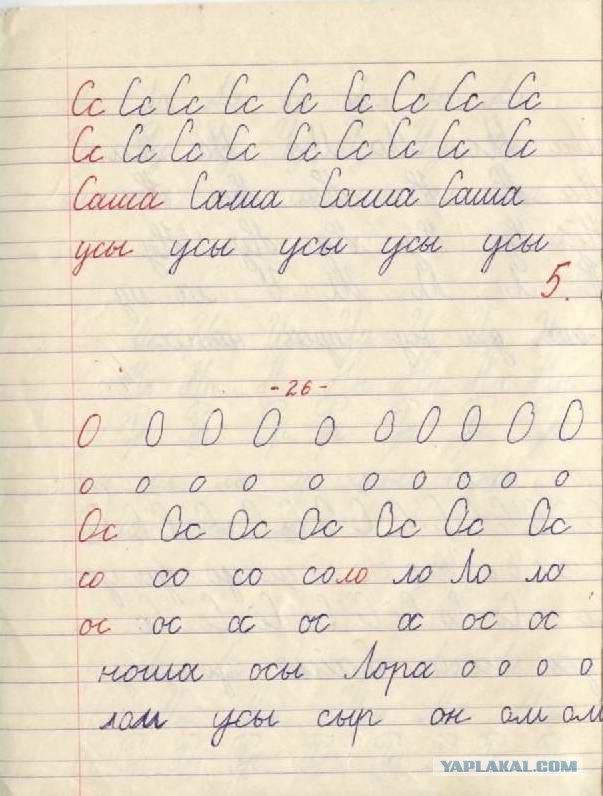 Сс Сс Сс Сс Сс Сс Сс Сс Сс
Сс Сс Сс Сс Сс Сс Сс Сс Сс
Саша Саша Саша Саша
усы усы усы усы усы
5.
-26-
О О О О О О О О О О
о о о о о о о о о о
Ос Ос Ос Ос Ос Ос Ос
со со со соло ло Ло ло
ос ос ос ос ос ос ос
ноша осы Лора о о о о
лом усы сыр он ом ом
YAPLAKAL.COM